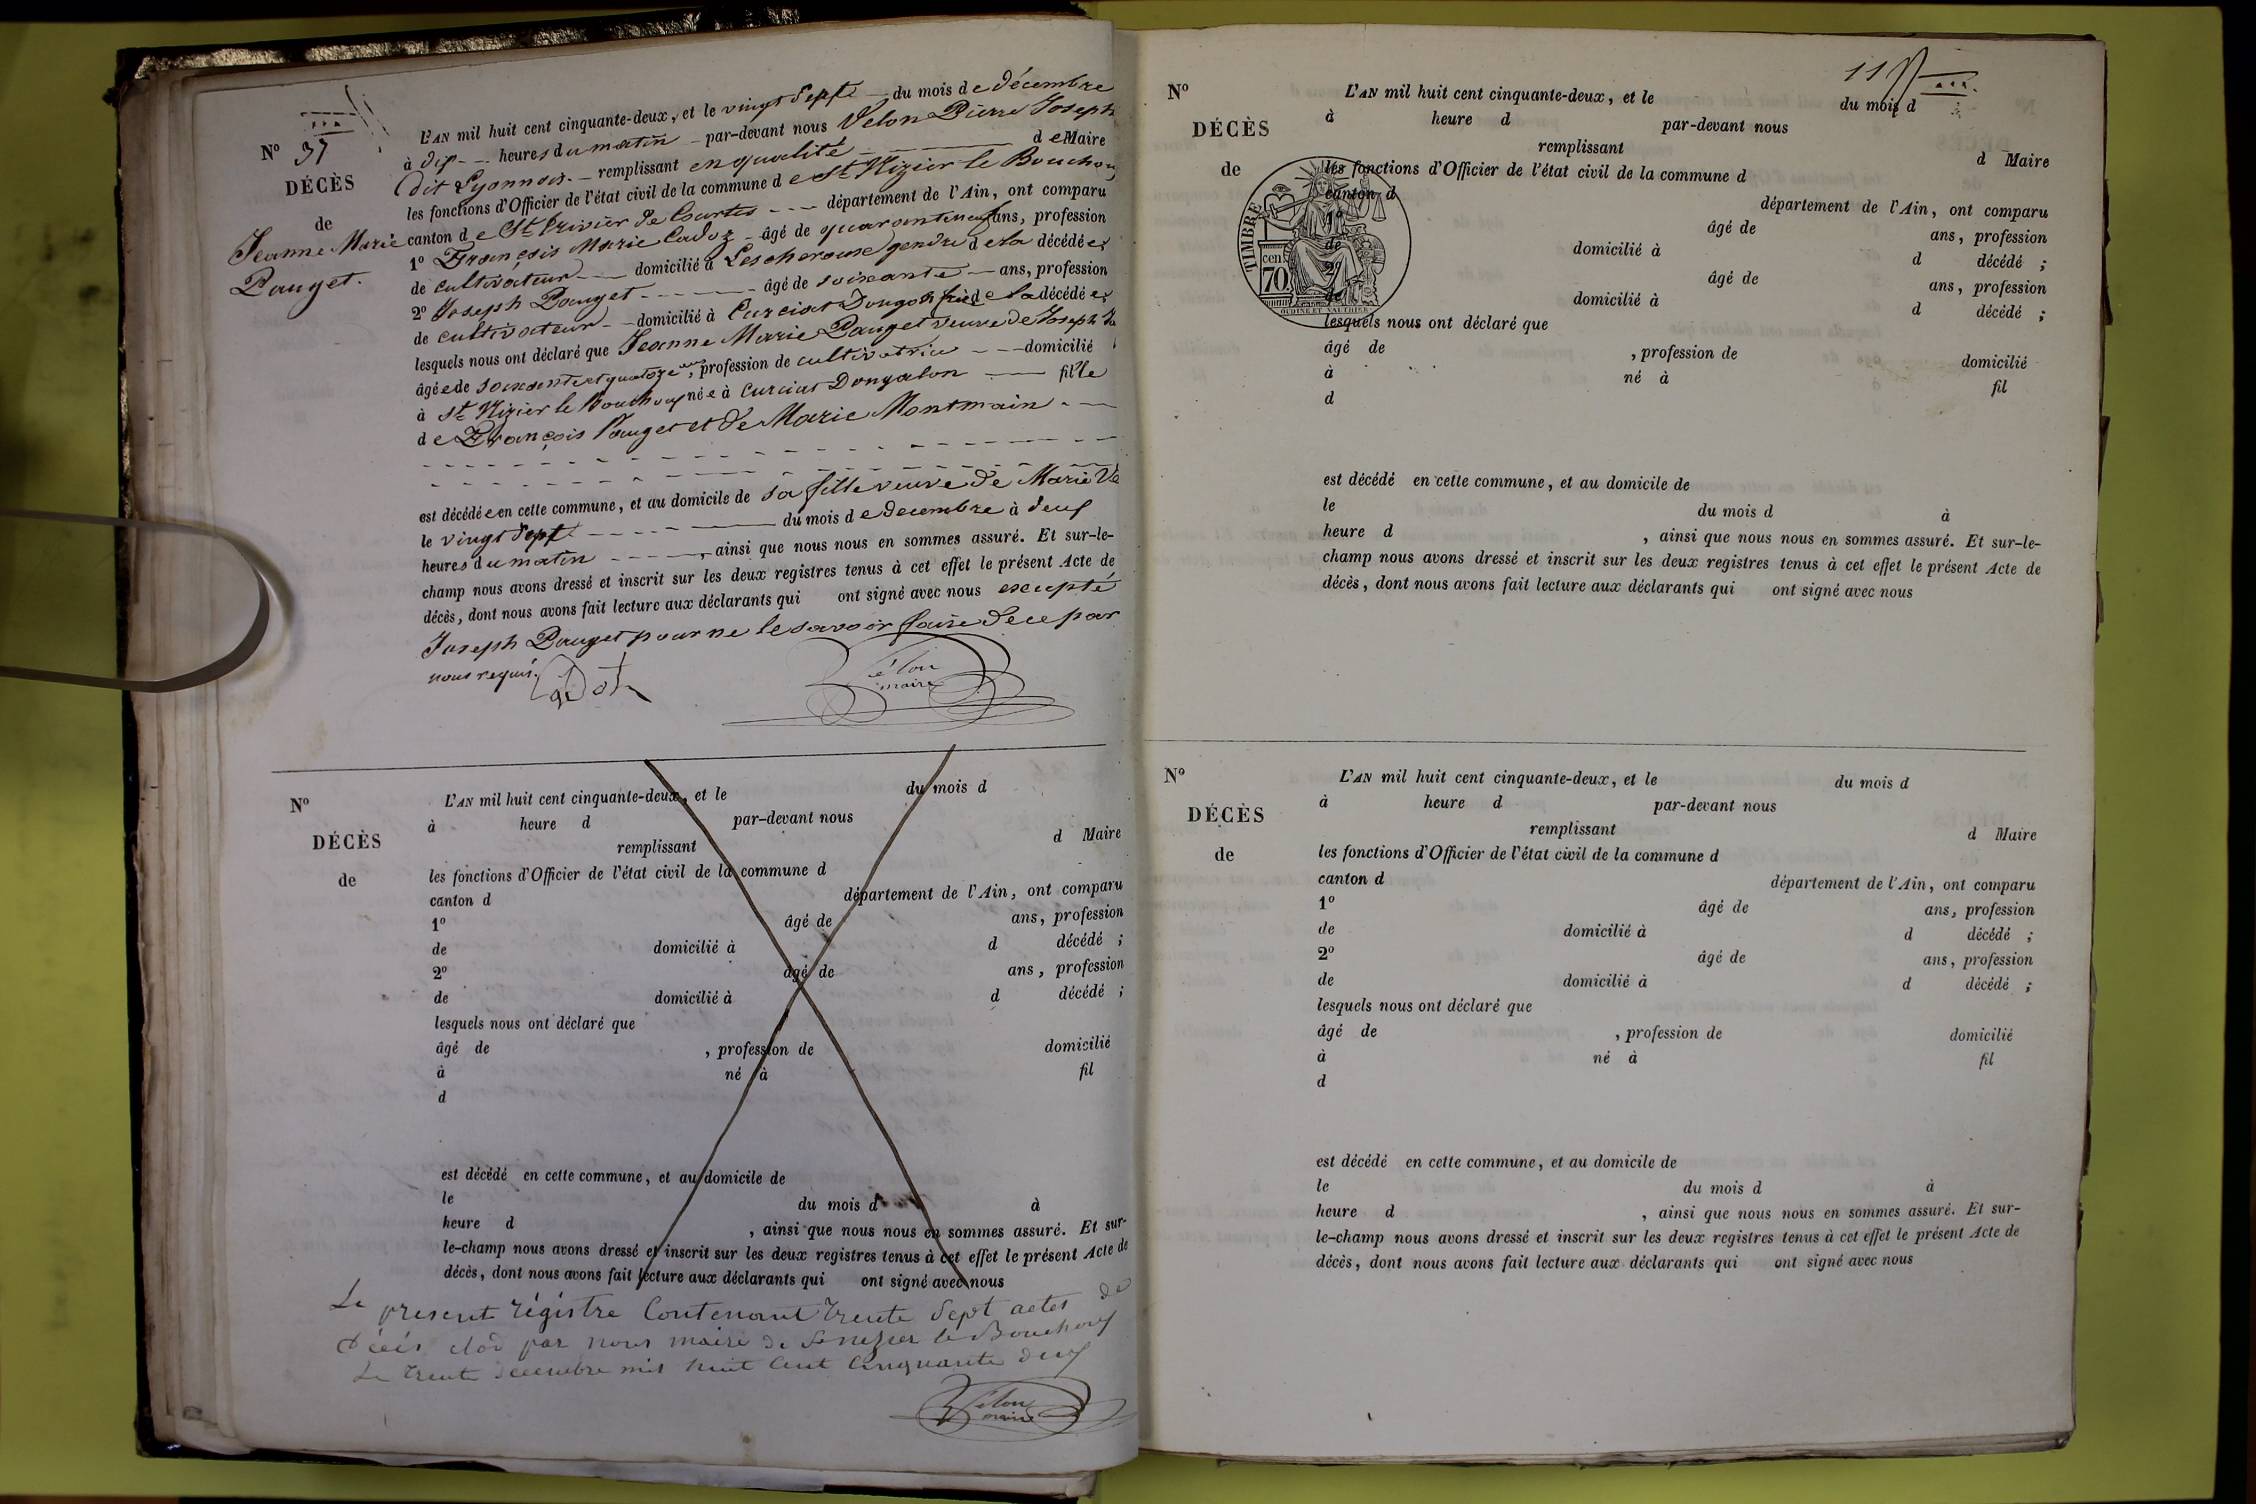 N° 37
DÉCÈS
de
Jeanne Marie
Pauget.
L'AN mil huit cent cinquante-deux, et le vingt Sept du mois de décembre
à dix heures du matin par-devant nous Velon Pierre Joseph
dit Lyonnois. remplissant en qualité de Maire
les fonctions d'Officier de l'état civil de la commune de St Nizier le Bouchoux
canton de St Trivier de Courtes département de l'Ain, ont comparu
1° François Marie Cadoz âgé de quaranteneuf ans, profession
de cultivateur domicilié à Lescheroux gendre de la décédée;
2° Joseph Pauget âgé de soixante ans, profession
de cultivateur domicilié à Curciat Dongalon frère de la décédée;
lesquels nous ont déclaré que Jeanne Marie Pauget veuve de Joseph
âgée de soixante et quatorze ans, profession de cultivatrice domicilié
à St Nizier le Bouchoux née à Curciat Dongalon fille
de François Pauget et de Marie Montmain
est décédée en cette commune, et au domicile de sa fille veuve de Marie
le vingt Sept du mois de decembre à deux
heures du matin, ainsi que nous nous en sommes assuré. Et sur-le-
champ nous avons dressé et inscrit sur les deux registres tenus à cet effet le présent Acte de
décès, dont nous avons fait lecture aux déclarants qui ont signé avec nous excepté
Joseph Pauget pour ne le savoir faire de ce par
nous requis.
Cadot
Vélon
maire
N°
DÉCÈS
de
L'AN mil huit cent cinquante-deux, et le du mois d
à heure d par-devant nous
remplissant d Maire
les fonctions d'Officier de l'état civil de la commune d
canton d département de l'Ain, ont comparu
1° âgé de ans, profession
de domicilié à d décédé ;
2° âgé de ans, profession
de domicilié à d décédé ;
lesquels nous ont déclaré que
âgé de , profession de domicilié
à né à fil
d
est décédé en cette commune, et au domicile de
le du mois d à
heure d , ainsi que nous nous en sommes assuré. Et sur-
le-champ nous avons dressé et inscrit sur les deux registres tenus à cet effet le présent Acte de
décès, dont nous avons fait lecture aux déclarants qui ont signé avec nous
Le present régistre Contenant trente Sept actes de
décès clos par nous maire de St nizier le Bouchoux
Le trente decembre mil huit cent Cinquante deux
Vélon
maire
11
N°
DÉCÈS
de
L'AN mil huit cent cinquante-deux, et le du mois d
à heure d par-devant nous
remplissant d Maire
les fonctions d'Officier de l'état civil de la commune d
canton d département de l'Ain, ont comparu
1° âgé de ans, profession
de domicilié à d décédé ;
2° âgé de ans, profession
de domicilié à d décédé ;
TIMBRE
70 cen
OUDINE ET VAUTHIER
lesquels nous ont déclaré que
âgé de , profession de domicilié
à né à fil
d
est décédé en cette commune, et au domicile de
le du mois d à
heure d , ainsi que nous nous en sommes assuré. Et sur-le-
champ nous avons dressé et inscrit sur les deux registres tenus à cet effet le présent Acte de
décès, dont nous avons fait lecture aux déclarants qui ont signé avec nous
N°
DÉCÈS
de
L'AN mil huit cent cinquante-deux, et le du mois d
à heure d par-devant nous
remplissant d Maire
les fonctions d'Officier de l'état civil de la commune d
canton d département de l'Ain, ont comparu
1° âgé de ans, profession
de domicilié à d décédé ;
2° âgé de ans, profession
de domicilié à d décédé ;
lesquels nous ont déclaré que
âgé de , profession de domicilié
à né à fil
d
est décédé en cette commune, et au domicile de
le du mois d à
heure d , ainsi que nous nous en sommes assuré. Et sur-
le-champ nous avons dressé et inscrit sur les deux registres tenus à cet effet le présent Acte de
décès, dont nous avons fait lecture aux déclarants qui ont signé avec nous